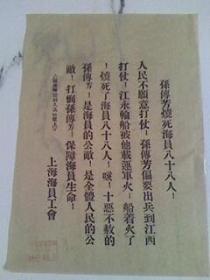 孫傳芳燒死海員八十八人！
人民不願意打仗！孫傳芳偏要出兵到江西
打仗！江永輪船被他載運軍火，船着火了
！燒死了海員八十八人！唉！十惡不赦的
孫傳芳！是海員的公敵！是全體人民的公
敵！打倒孫傳芳！保障海員生命！
上海海員工會